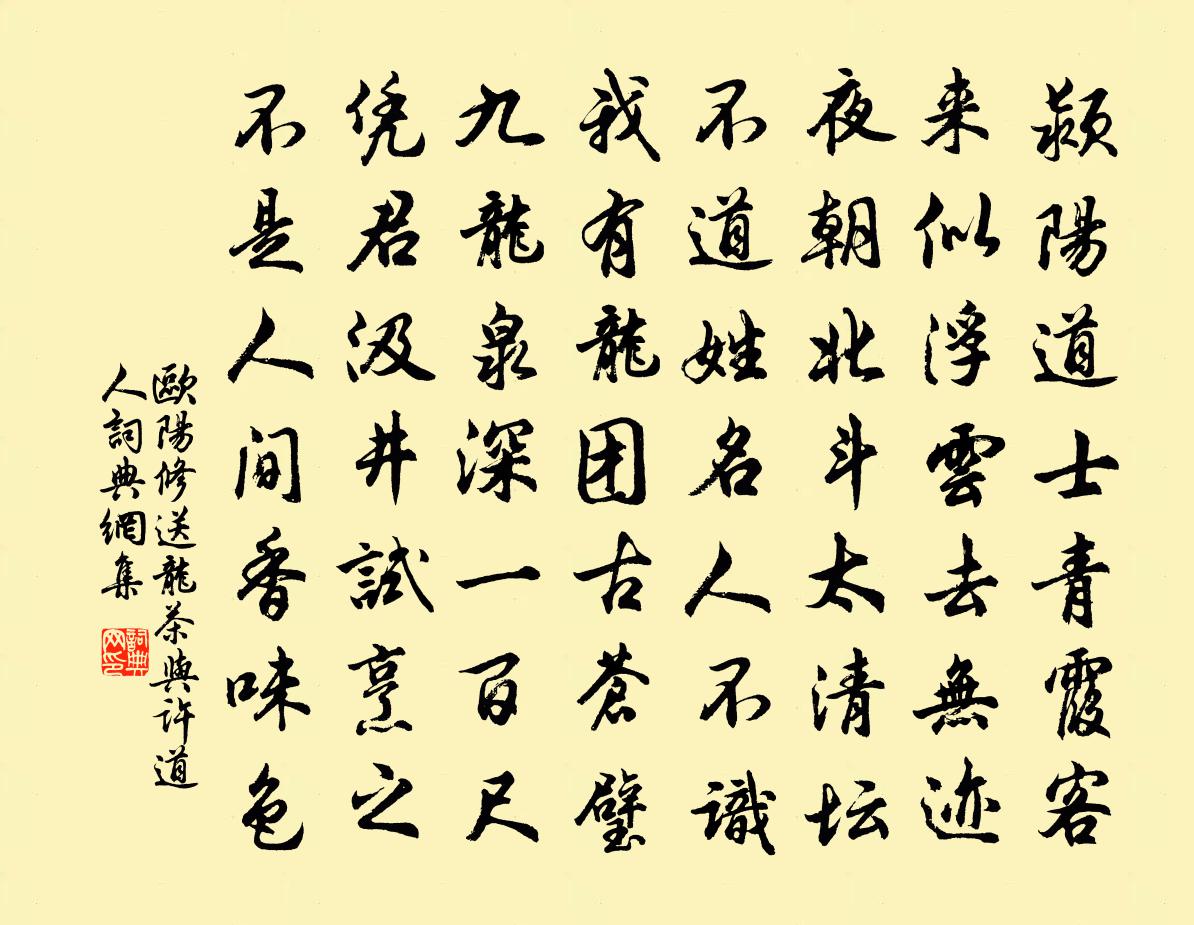 颍陽道士青霞客
来似浮雲去無迹
夜朝北斗太清坛
不道姓名人不識
我有龍团古蒼璧
九龍泉深一百尺
凭君汲井試烹之
不是人间香味色
歐陽修送龍茶與許道
人詞典網集
詞典
网印